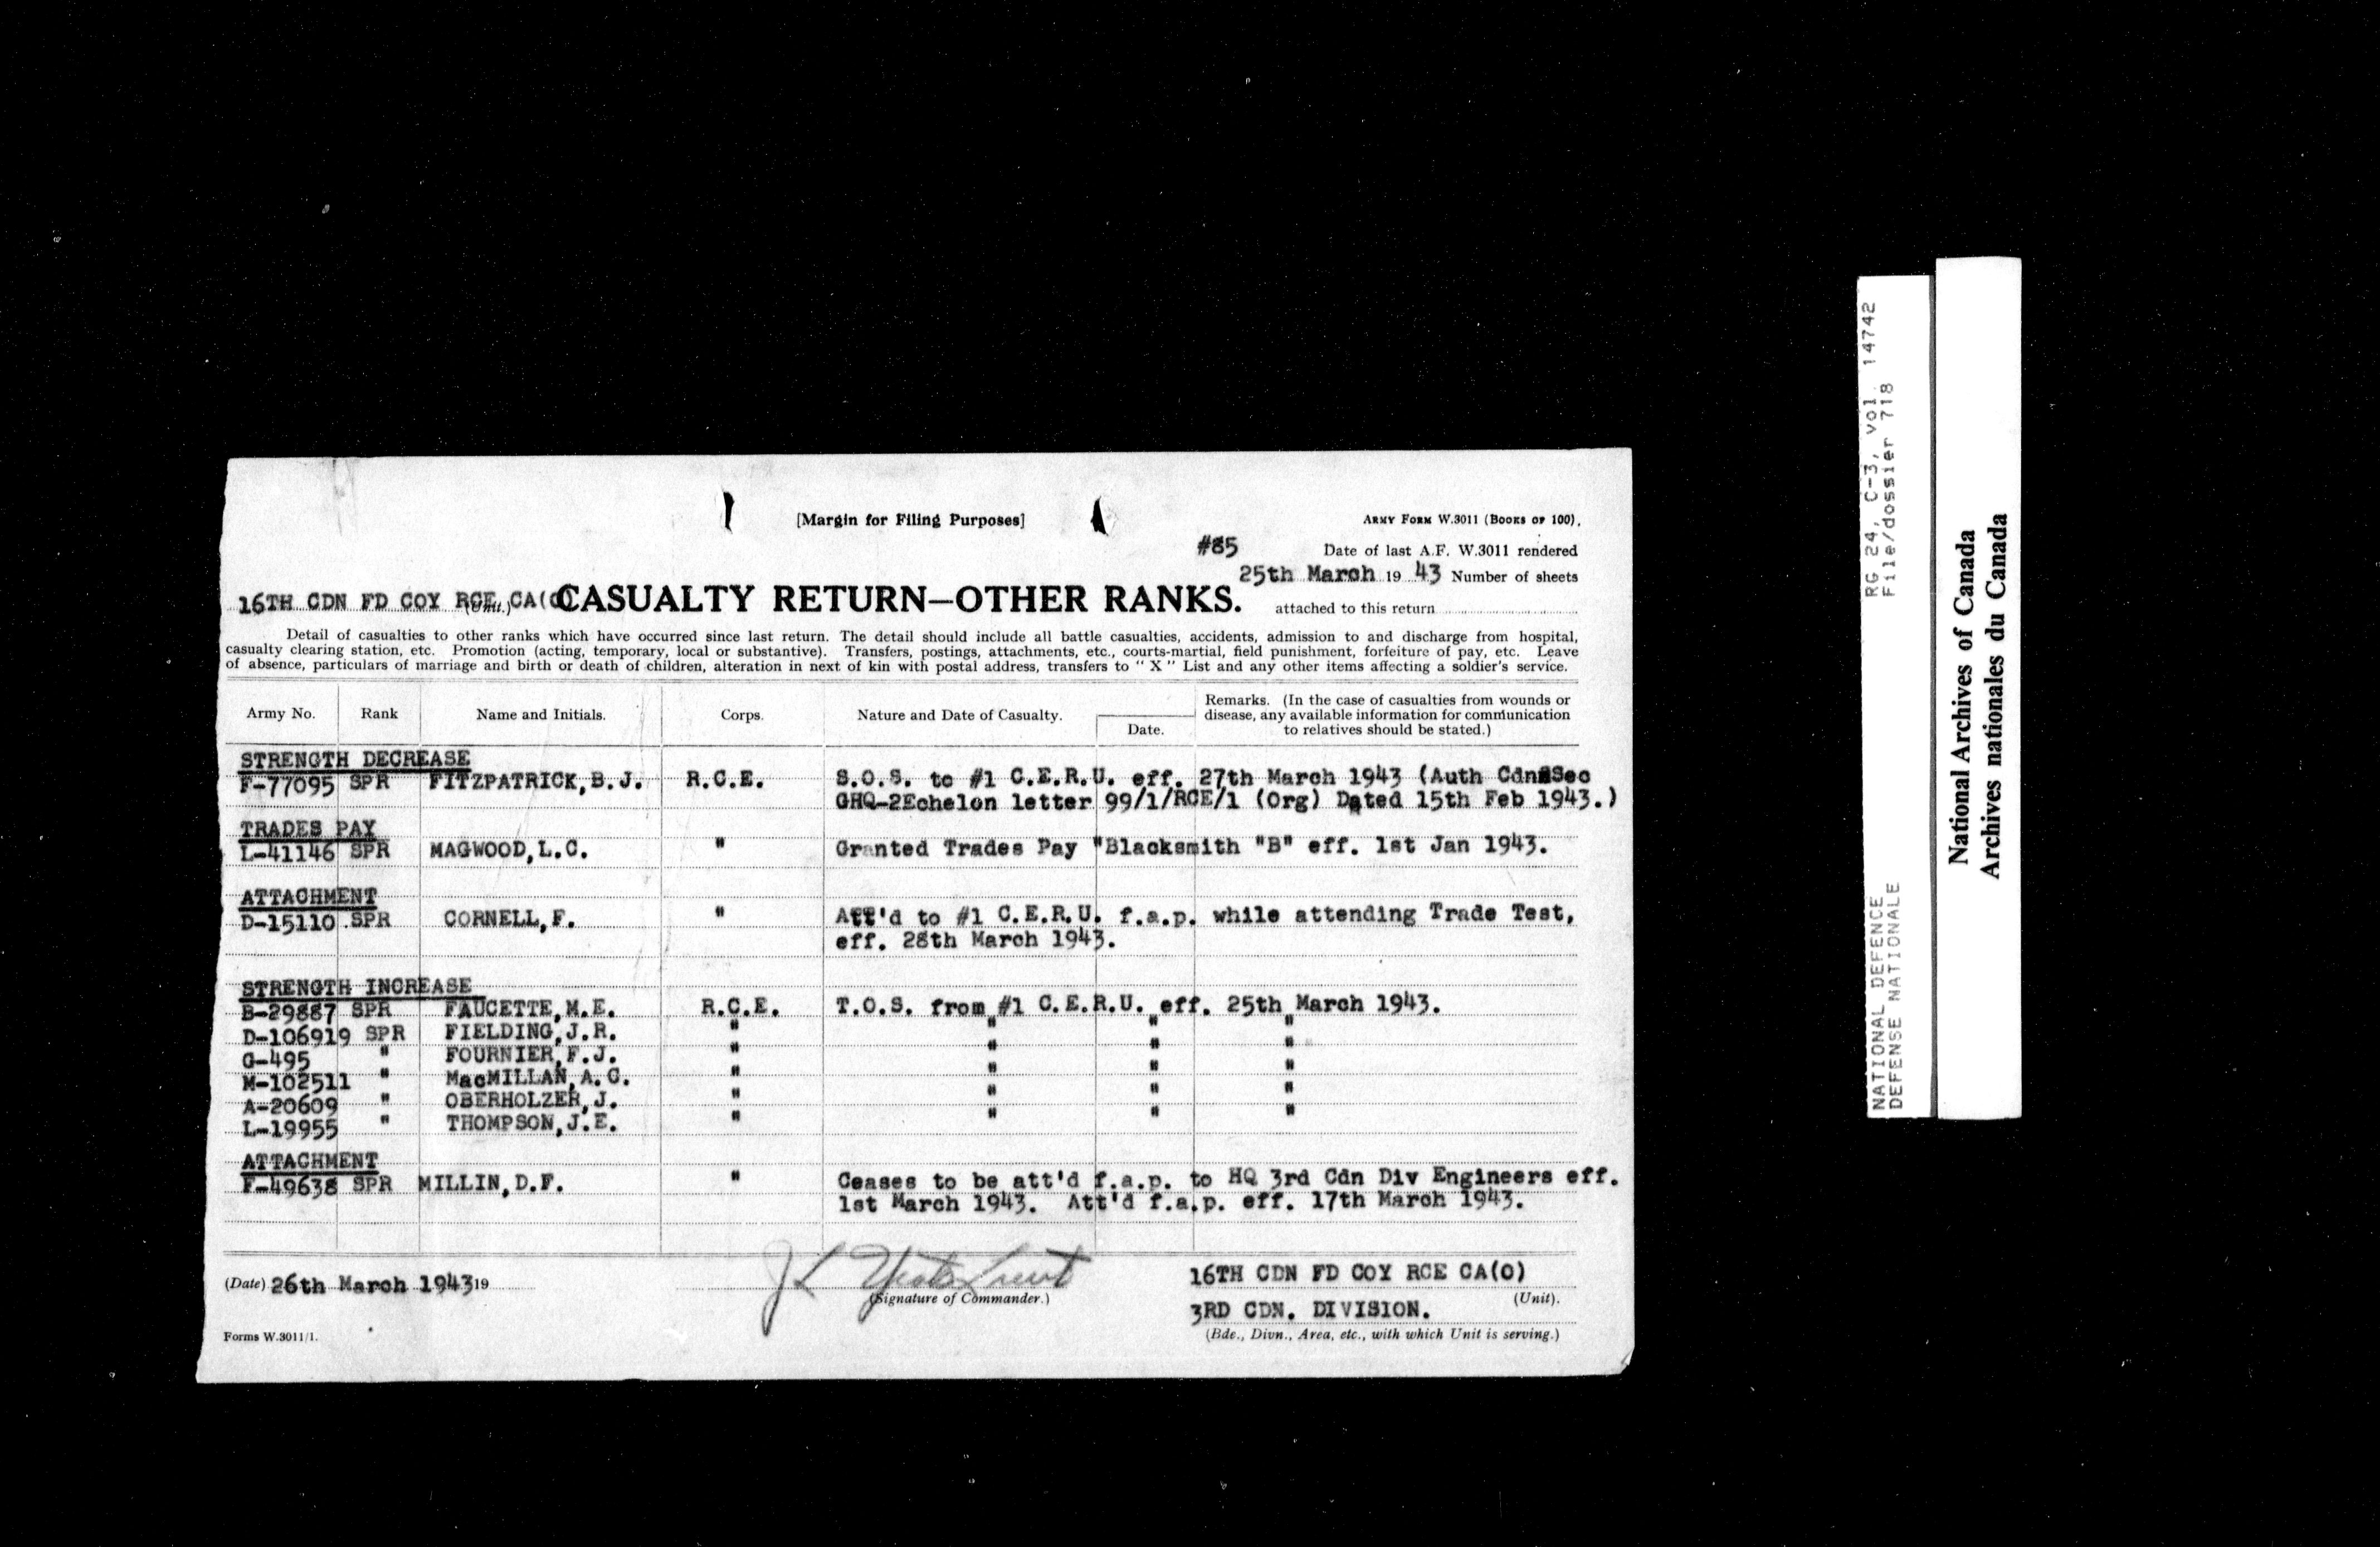 [Margin for Filing Purposes]
ARMY FORM W.3011 (BOOKS OF 100).
#85
Date of last A.F. W.3011 rendered
25th March 19 43 Number of sheets
16TH CDN FD COY RCE CA(O) (Unit.) CASUALTY RETURN—OTHER RANKS.
attached to this return
Detail of casualties to other ranks which have occurred since last return. The detail should include all battle casualties, accidents, admission to and discharge from hospital,
casualty clearing station, etc. Promotion (acting, temporary, local or substantive). Transfers, postings, attachments, etc., courts-martial, field punishment, forfeiture of pay, etc. Leave
of absence, particulars of marriage and birth or death of children, alteration in next of kin with postal address, transfers to " X " List and any other items affecting a soldier's service.
Army No. Rank Name and Initials. Corps. Nature and Date of Casualty. Date. Remarks. (In the case of casualties from wounds or
disease, any available information for communication
to relatives should be stated.)
STRENGTH DECREASE
F-77095 SPR FITZPATRICK,B.J. R.C.E. S.O.S. to #1 C.E.R.U. eff. 27th March 1943 (Auth Cdn Sec
GHQ-2Echelon letter 99/1/RCE/1 (Org) Dated 15th Feb 1943.)
TRADES PAY
L-41146 SPR MAGWOOD,L.C. " Granted Trades Pay "Blacksmith "B" eff. 1st Jan 1943.
ATTACHMENT
D-15110 SPR CORNELL,F. " Att'd to #1 C.E.R.U. f.a.p. while attending Trade Test,
eff. 28th March 1943.
STRENGTH INCREASE
B-29887 SPR FAUCETTE,M.E. R.C.E. T.O.S. from #1 C.E.R.U. eff. 25th March 1943.
D-106919 SPR FIELDING,J.R. " " " "
G-495 " FOURNIER,F.J. " " " "
M-102511 " MacMILLAN,A.C. " " " "
A-20609 " OBERHOLZER,J. " " " "
L-19955 " THOMPSON,J.E. " " " "
ATTACHMENT
F-49638 SPR MILLIN,D.F. " Ceases to be att'd f.a.p. to HQ 3rd Cdn Div Engineers eff.
1st March 1943. Att'd f.a.p. eff. 17th March 1943.
(Date) 26th March 1943 19
(Signature of Commander.)
16TH CDN FD COY RCE CA(O)
(Unit).
3RD CDN. DIVISION.
(Bde., Divn., Area, etc., with which Unit is serving.)
Forms W.3011/1.
RG 24, C-3, Vol. 14742
File/dossier 718
NATIONAL DEFENCE
DEFENSE NATIONALE
National Archives of Canada
Archives nationales du Canada